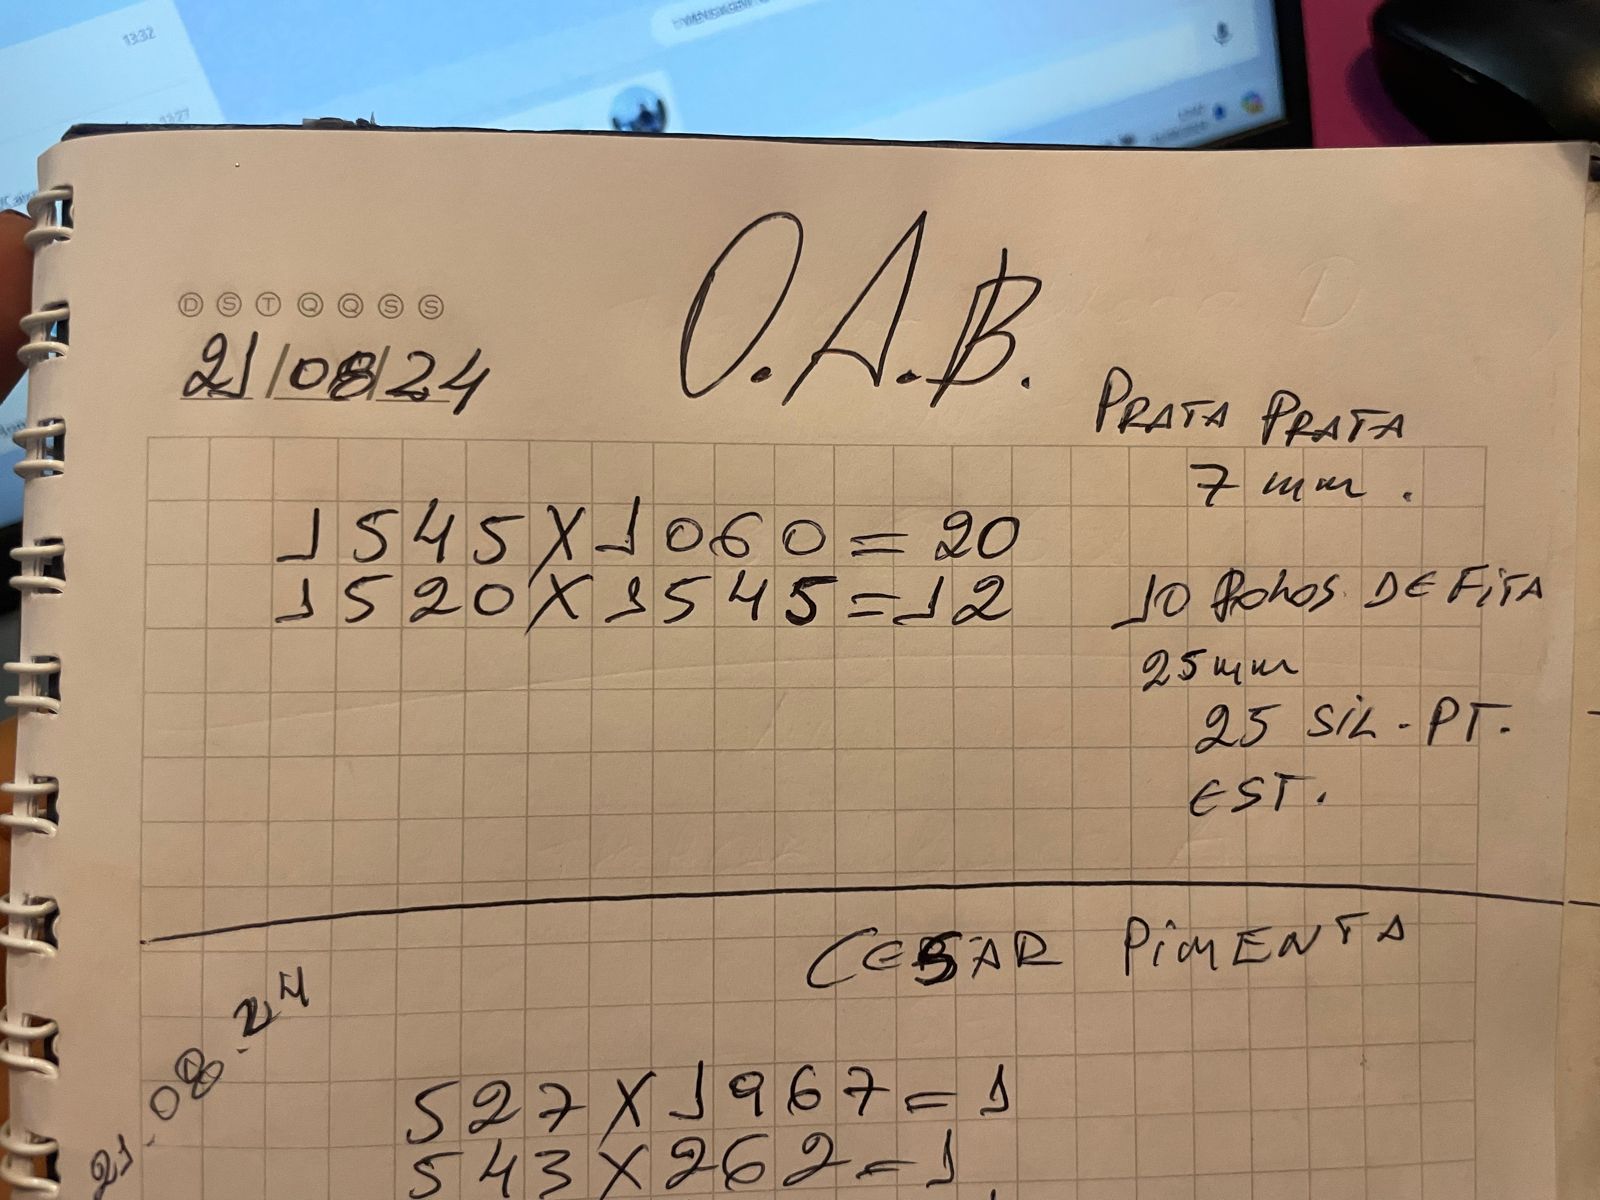 D S T Q Q S S
21/08/24
O.A.B.
PRATA PRATA
7 mm.
1545X1060=20
1520X1545=12
10 Rolos DE FiTA
25mm
25 SiL-PT.
EST.
CESAR PiMENTA
21.08.24
527X1967=1
543X262=1
13:32
13:27